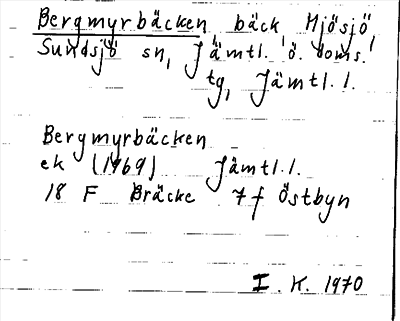 Bergmyrbäcken bäck Mjösjö,
Sundsjö sn, Jämtl. ö. doms.
tg, Jämtl. l.
Bergmyrbäcken
ek (1969) Jämtl. l.
18 F Bräcke 7 f Östbyn
I. K. 1970